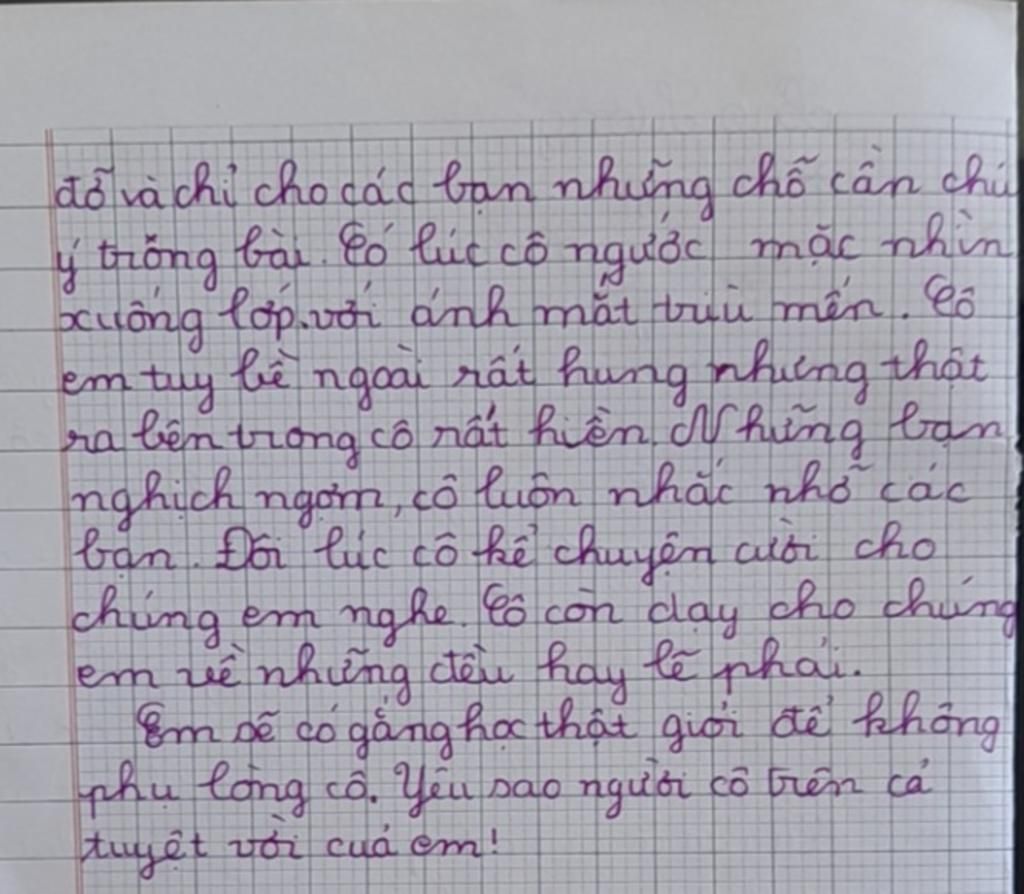 đỡ và chỉ cho các bạn những chỗ cần chú
ý trong bài. Có lúc cô ngước mặc nhìn
xuống lớp với ánh mắt trìu mến. Cô
em tuy bề ngoài rất hung nhưng thật
ra bên trong cô rất hiền. Những bạn
nghịch ngợm, cô luôn nhắc nhỡ các
bạn. Đôi lúc cô kể chuyện cười cho
chúng em nghe. Cô còn dạy cho chúng
em về những đều hay lẽ phải.
Em sẽ cố gắng học thật giỏi để không
phụ lòng cô. Yêu sao người cô trên cả
tuyệt vời của em!